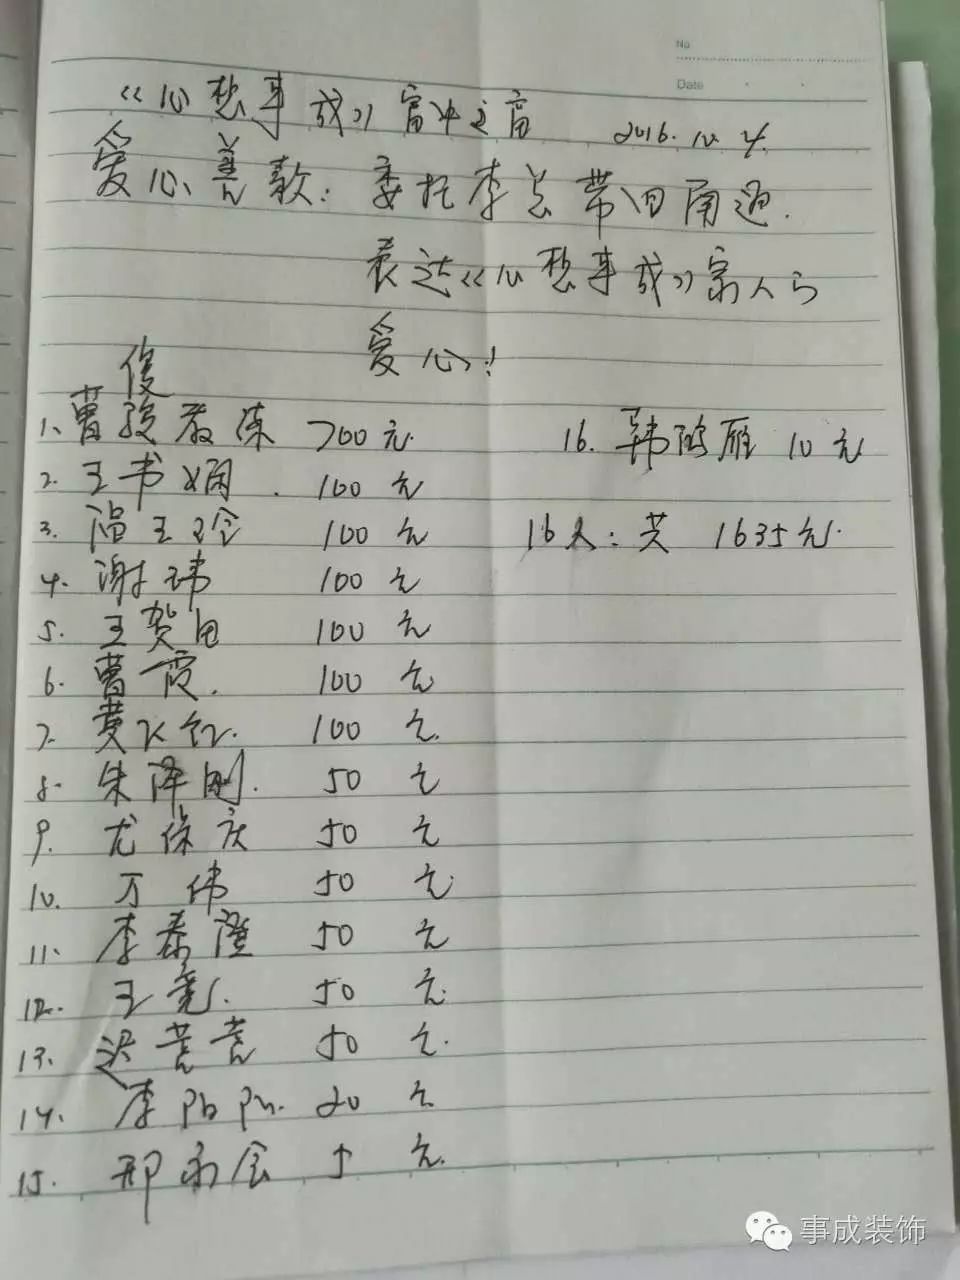 No
Date
《心想事成》富中之富 2016.10.4
爱心善款：委托李总带回南通.
表达《心想事成》家人的
爱心！
俊
1. 曹骏教练 700元 16. 韩鸿雁 10元
2. 王书娴. 100元
3. 王玲 100元 16人：共 1635元.
4. 谢玮 100元
5. 王贺田 100元
6. 曹霞. 100元
7. 黄飞红. 100元.
8. 朱泽刚. 50元
9. 尤保庆 50元
10. 万伟 50元
11. 李泰隆 50元
12. 王亮. 50元.
13. 迟苦苦 50元.
14. 李阳阳. 20元
15. 邢永会 5元.
事成装饰